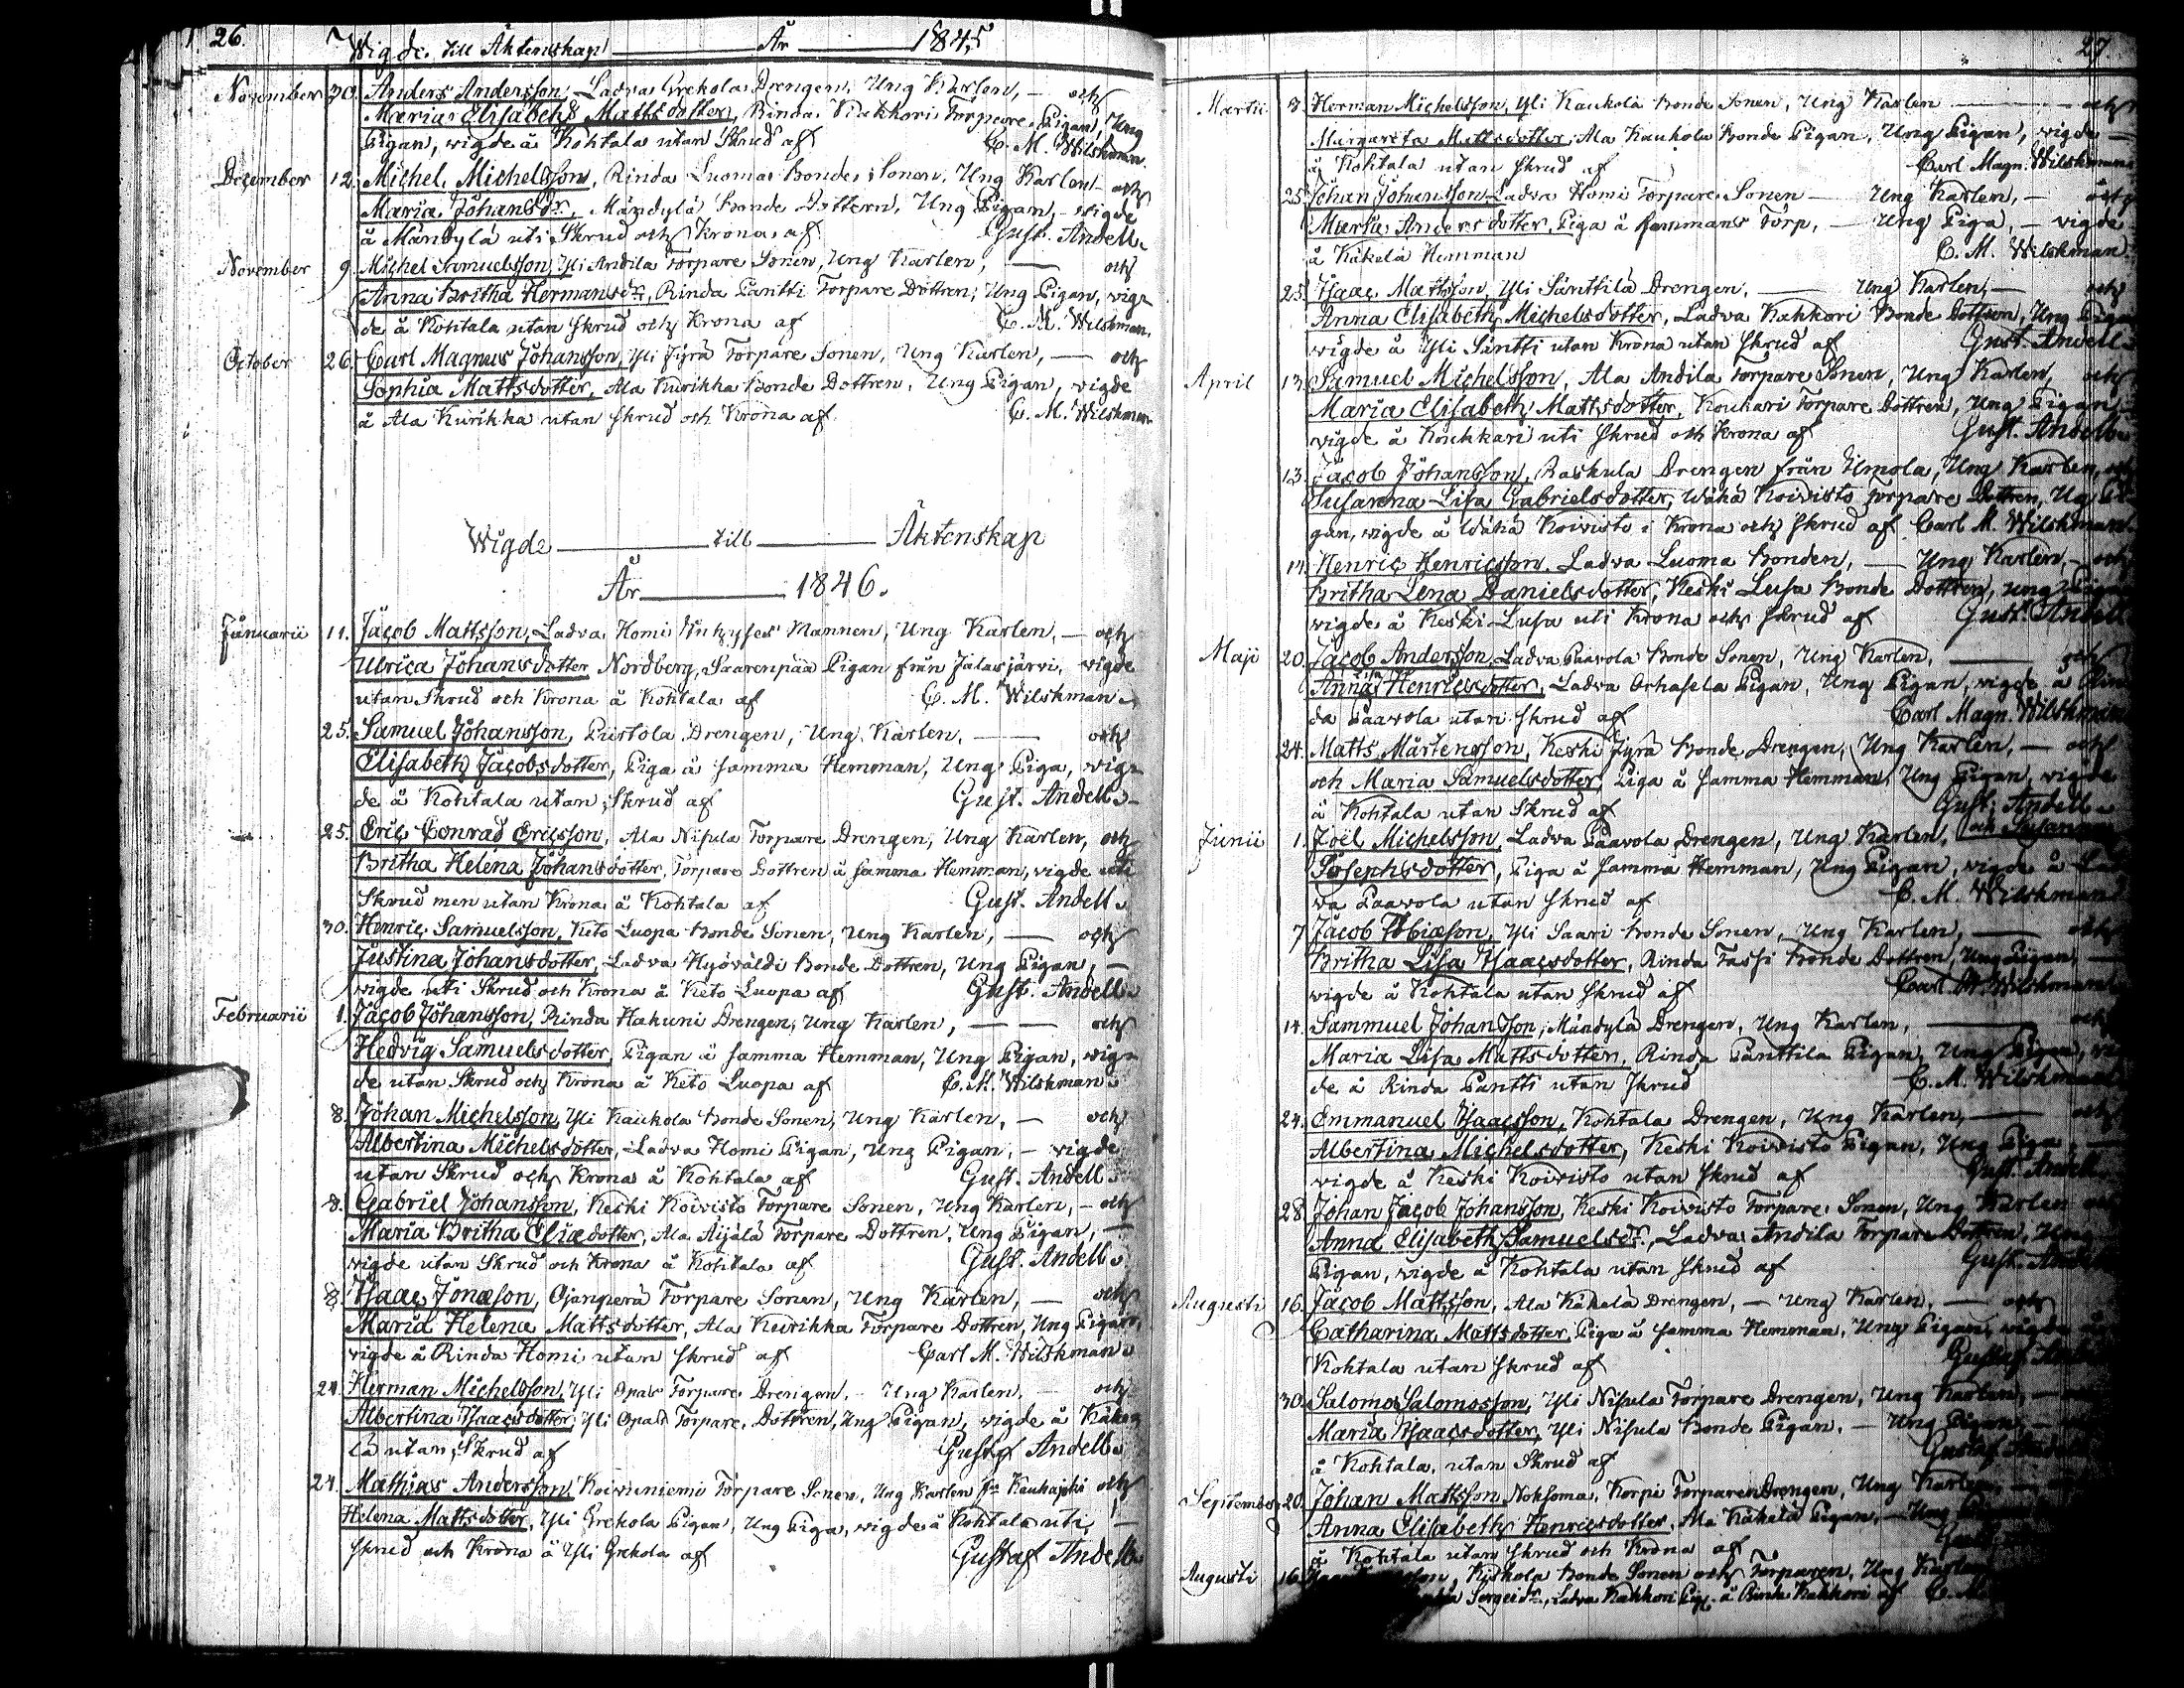 26. Wigde till Äktenskap År 1845
November 30. Anders Andersson Ladva Grekola Drengen, Ung Karlen, — och
Maria Elisabeth Mattsdotter, Rinda Kakkori Torpare Pigan, Ung
Pigan, wigde å Kohtala utan Skrud af C. M. Wilskman.
December 12. Michel Michelsson, Rinda Luoma Bonde Sonen, Ung Karlen — och
Maria Johansdr, Mändylä Bonde Dottern, Ung Pigan, — wigde
å Mändylä uti Skrud och Krona af Gust. Andell.
November 9. Michel Samuelsson, Yli Andila Torpare Sonen, Ung Karlen, — och
Anna Britha Hermansdr, Rinda Pantti Torpare Dottren, Ung Pigan, wig-
de å Kohtala utan Skrud och Krona af C. M. Wilskman.
October 26. Carl Magnus Johansson, Yli Jyrä Torpare Sonen, Ung Karlen, — och
Sophia Mattsdotter, Ala Kurikka Bonde Dottren, Ung Pigan, wigde
å Ala Kurikka utan Skrud och Krona af C. M. Wilskman
Wigde — till — Äktenskap
År — 1846.
Januarii 11. Jacob Mattsson, Ladva Homi Mannen, Ung Karlen, — och
Ulrica Johansdotter Nordberg, Saarenpää Pigan från Jalasjärvi, wigde
utan Skrud och Krona å Kohtala af C. M. Wilskman.
25. Samuel Johansson, Purtola Drengen, Ung Karlen, — och
Elisabeth Jacobsdotter, Piga å samma Hemman, Ung Piga, wig-
de å Kohtala utan Skrud af Gust. Andell.
25. Eric Conrad Ericsson, Ala Nisula Torpare Drengen, Ung Karlen, och
Britha Helena Johansdotter, Torpare Dottren å samma Hemman, wigde uti
Skrud men utan Krona å Kohtala af Gust. Andell.
30. Henric Samuelsson, Keto Luopa Bonde Sonen, Ung Karlen, — och
Justina Johansdotter, Ladva Hyöväldi Bonde Dottren, Ung Pigan, —
wigde uti Skrud och Krona å Keto Luopa af Gust. Andell.
Februarii 1. Jacob Johansson, Rinda Hakuni Drengen, Ung Karlen, — — och
Hedvig Samuelsdotter, Pigan å samma Hemman, Ung Pigan, wig-
de utan Skrud och Krona å Keto Luopa af C. M. Wilskman.
8. Johan Michelsson, Yli Kaukola Bonde Sonen, Ung Karlen, — och
Albertina Michelsdotter, Ladva Homi Pigan, Ung Pigan, — wigde
utan Skrud och Krona å Kohtala af Gust. Andell.
8. Gabriel Johansson, Keski Koivisto Torpare Sonen, Ung Karlen, — och
Maria Britha Eliædotter, Ala Äijälä Torpare Dottren, Ung Pigan, —
wigde utan Skrud och Krona å Kohtala af Gust. Andell.
8. Isaac Jonæson, Ojanperä Torpare Sonen, Ung Karlen, — och
Maria Helena Mattsdotter, Ala Kurikka Torpare Dottren, Ung Pigan,
wigde å Rinda Homi utan skrud af Carl M. Wilskman.
24. Herman Michelsson, Yli Opas Torpare Drengen, — Ung Karlen, — och
Albertina Isaacsdotter, Yli Torpare Dottren, Ung Pigan, wigde å Käke-
lä utan Skrud af Gustaf Andell.
24. Mathias Andersson, Koivuniemi Torpare Sonen, Ung Karlen frn Kauhajoki och
Helena Mattsdotter, Yli Grekola Pigan, Ung Piga, wigde å Kohtala uti —
skrud och Krona å Yli Grekola af Gustaf Andell.
27.
Martii 8. Herman Michelsson, Yli Kaukola Bonde Sonen, Ung Karlen — och
Margareta Mattsdotter, Ala Kaukola Bonde Pigan, Ung Pigan, wigde —
å Kohtala utan skrud af Carl Magn. Wilskman
25. Johan Johansson Ladva Homi Torpare Sonen — Ung Karlen, — och
Maria Andersdotter, Piga å sammans Torp, — Ung Piga, — wigde
å Käkelä Hemman C. M. Wilskman.
25. Isaac Mattsson, Yli Säntilä Drengen, — Ung Karlen, — och
Anna Elisabeth Michelsdotter, Ladva Kakkori Bonde Dottren, Ung Pigan
wigde å Yli Säntti utan Krona utan skrud af Gust. Andell.
April 13. Samuel Michelsson, Ala Andila Torpare Sonen, Ung Karlen, och
Maria Elisabeth Mattsdotter, Koukari Torpare Dottren, Ung Pigan
wigde å Koukkari uti skrud och Krona af Gust. Andell.
13. Jacob Johansson, Raskula Drengen från Ilmola, Ung Karlen, och
Susanna Lisa Gabrielsdotter, Wähä Koivisto Torpare Dottren, Ung Pi-
gan, wigde å Wähä Koivisto i Krona och skrud af Carl M. Wilskman.
14. Henric Henricsson, Ladva Luoma Bonden, — Ung Karlen, — och
Britha Lena Danielsdotter, Keski Lusa Bonde Dottren, Ung Pigan
wigde å Keski Lusa uti Krona och Skrud af Gust. Andell
Maji 20. Jacob Andersson, Ladva Paavola Bonde Sonen, Ung Karlen, — och
Anna Lisa Henricsdotter, Ladva Orhasela Pigan, Ung Pigan, wigde å
da Paavola utan skrud af Carl Magn. Wilskman
24. Matts Mårtensson, Keski Jyrä Bonde Drengen, Ung Karlen, — och
och Maria Samuelsdotter, Piga å samma Hemman, Ung Pigan, wigde
å Kohtala utan Skrud af Gust. Andell.
Junii 1. Joël Michelsson, Ladva Paavola Drengen, Ung Karlen, och Susanna
Josephsdotter, Piga å samma Hemman, Ung Pigan, wigde å Lad-
va Paavola utan skrud af C. M. Wilskman.
7 Jacob Tobiæson, Yli Saari Bonde Sonen, Ung Karlen, — och
Britha Lisa Isaacsdotter, Rinda Tassi Bonde Dottren, Ung Pigan,
wigde å Kohtala utan skrud af Carl M. Wilskman
14. Sammuel Johansson, Mändylä Drengen, Ung Karlen, — och
Maria Lisa Mattsdotter, Rinda Panttila Pigan, Ung Pigan,
de å Rinda Pantti utan skrud C. M. Wilskman
24. Emmanuel Isaacsson, Kohtala Drengen, Ung Karlen, — och
Albertina Michelsdotter, Keski Koivisto Pigan, Ung Piga, —
wigde å Keski Koivisto utan skrud af Gust. Andell
28. Johan Jacob Johansson, Keski Koivisto Torpare Sonen, Ung Karlen
Anna Elisabeth Samuelsdr, Ladva Andila Torpare Dottren, Ung
Pigan, wigde å Kohtala utan skrud af Gust. Andell
Augusti 16. Jacob Mattsson, Ala Käkelä Drengen, — Ung Karlen, — och
Catharina Mattsdotter, Piga å samma Hemman, Ung Pigan, wigde å
Kohtala utan skrud af Gustaf
30. Salomo Salomosson, Yli Nisula Torpare Drengen, Ung Karlen,
Maria Isaacsdotter, Yli Nisula Bonde Pigan, — Ung Pigan
å Kohtala, utan Skrud af Gustaf
September 20. Johan Mattsson Korpi Torparen Drengen, Ung Karlen
Anna Elisabeth Henricsdotter, Ala Käkelä Pigan, — Ung
å Kohtala utan skrud och Krona af
Augusti 16. Kiskola Bonde Sonen och Torparen, Ung Karlen
Ladva Kakkori Pig. å Rinda Kakkori af C. M.